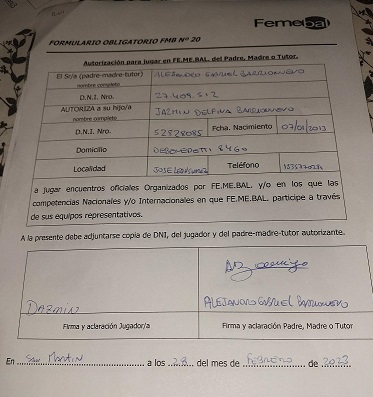 Femebal
FORMULARIO OBLIGATORIO FMB Nº 20
Autorización para jugar en FE.ME.BAL. del Padre, Madre o Tutor.
El Sr/a (padre-madre-tutor) ALEJANDRO GABRIEL BARRIONUEVO
nombre completo
D.N.I. Nro. 27.409.512
AUTORIZA a su hijo/a JAZMIN DELFINA BARRIONUEVO
nombre completo
D.N.I. Nro. 52828085 Fcha. Nacimiento 07/01/2013
Domicilio 8460
Localidad JOSE Teléfono
a jugar encuentros oficiales Organizados por FE.ME.BAL. y/o en los que las
competencias Nacionales y/o Internacionales en que FE.ME.BAL. participe a través
de sus equipos representativos.
A la presente debe adjuntarse copia de DNI, del jugador y del padre-madre-tutor autorizante.
ALEJANDRO GABRIEL BARRIONUEVO
Firma y aclaración Jugador/a Firma y aclaración Padre, Madre o Tutor
En San Martin a los 28 del mes de FEBRERO de 2023